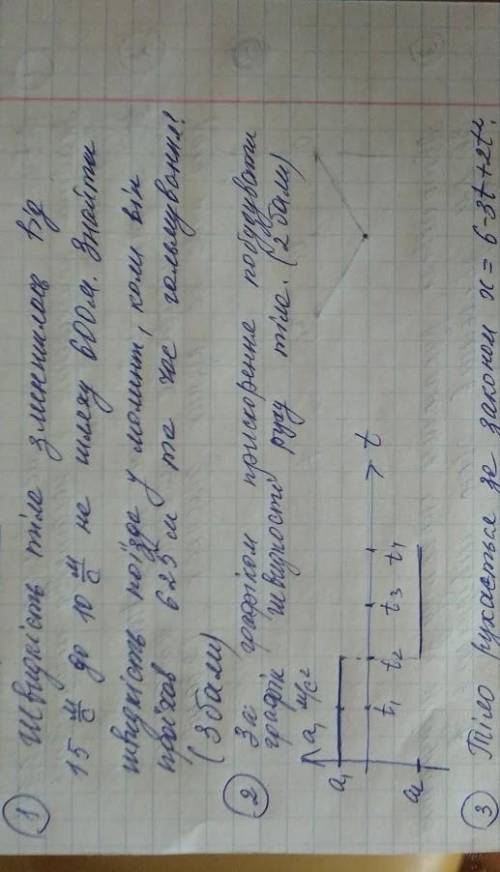 1 Швидкість тіла зменшилась від
15 м/с до 10 м/с на шляху 600 м. Знайти
швидкість поїзда у момент, коли він
пройшов 625 м та час гальмування!
(3 бали)
2 За графіком прискорення побудувати
графік швидкості руху тіла. (2 бали)
a, м/с²
a₁
t₁ t₂ t₃ t₄ t
a₂
3 Тіло рухається за законом x = 6-3t+2t².